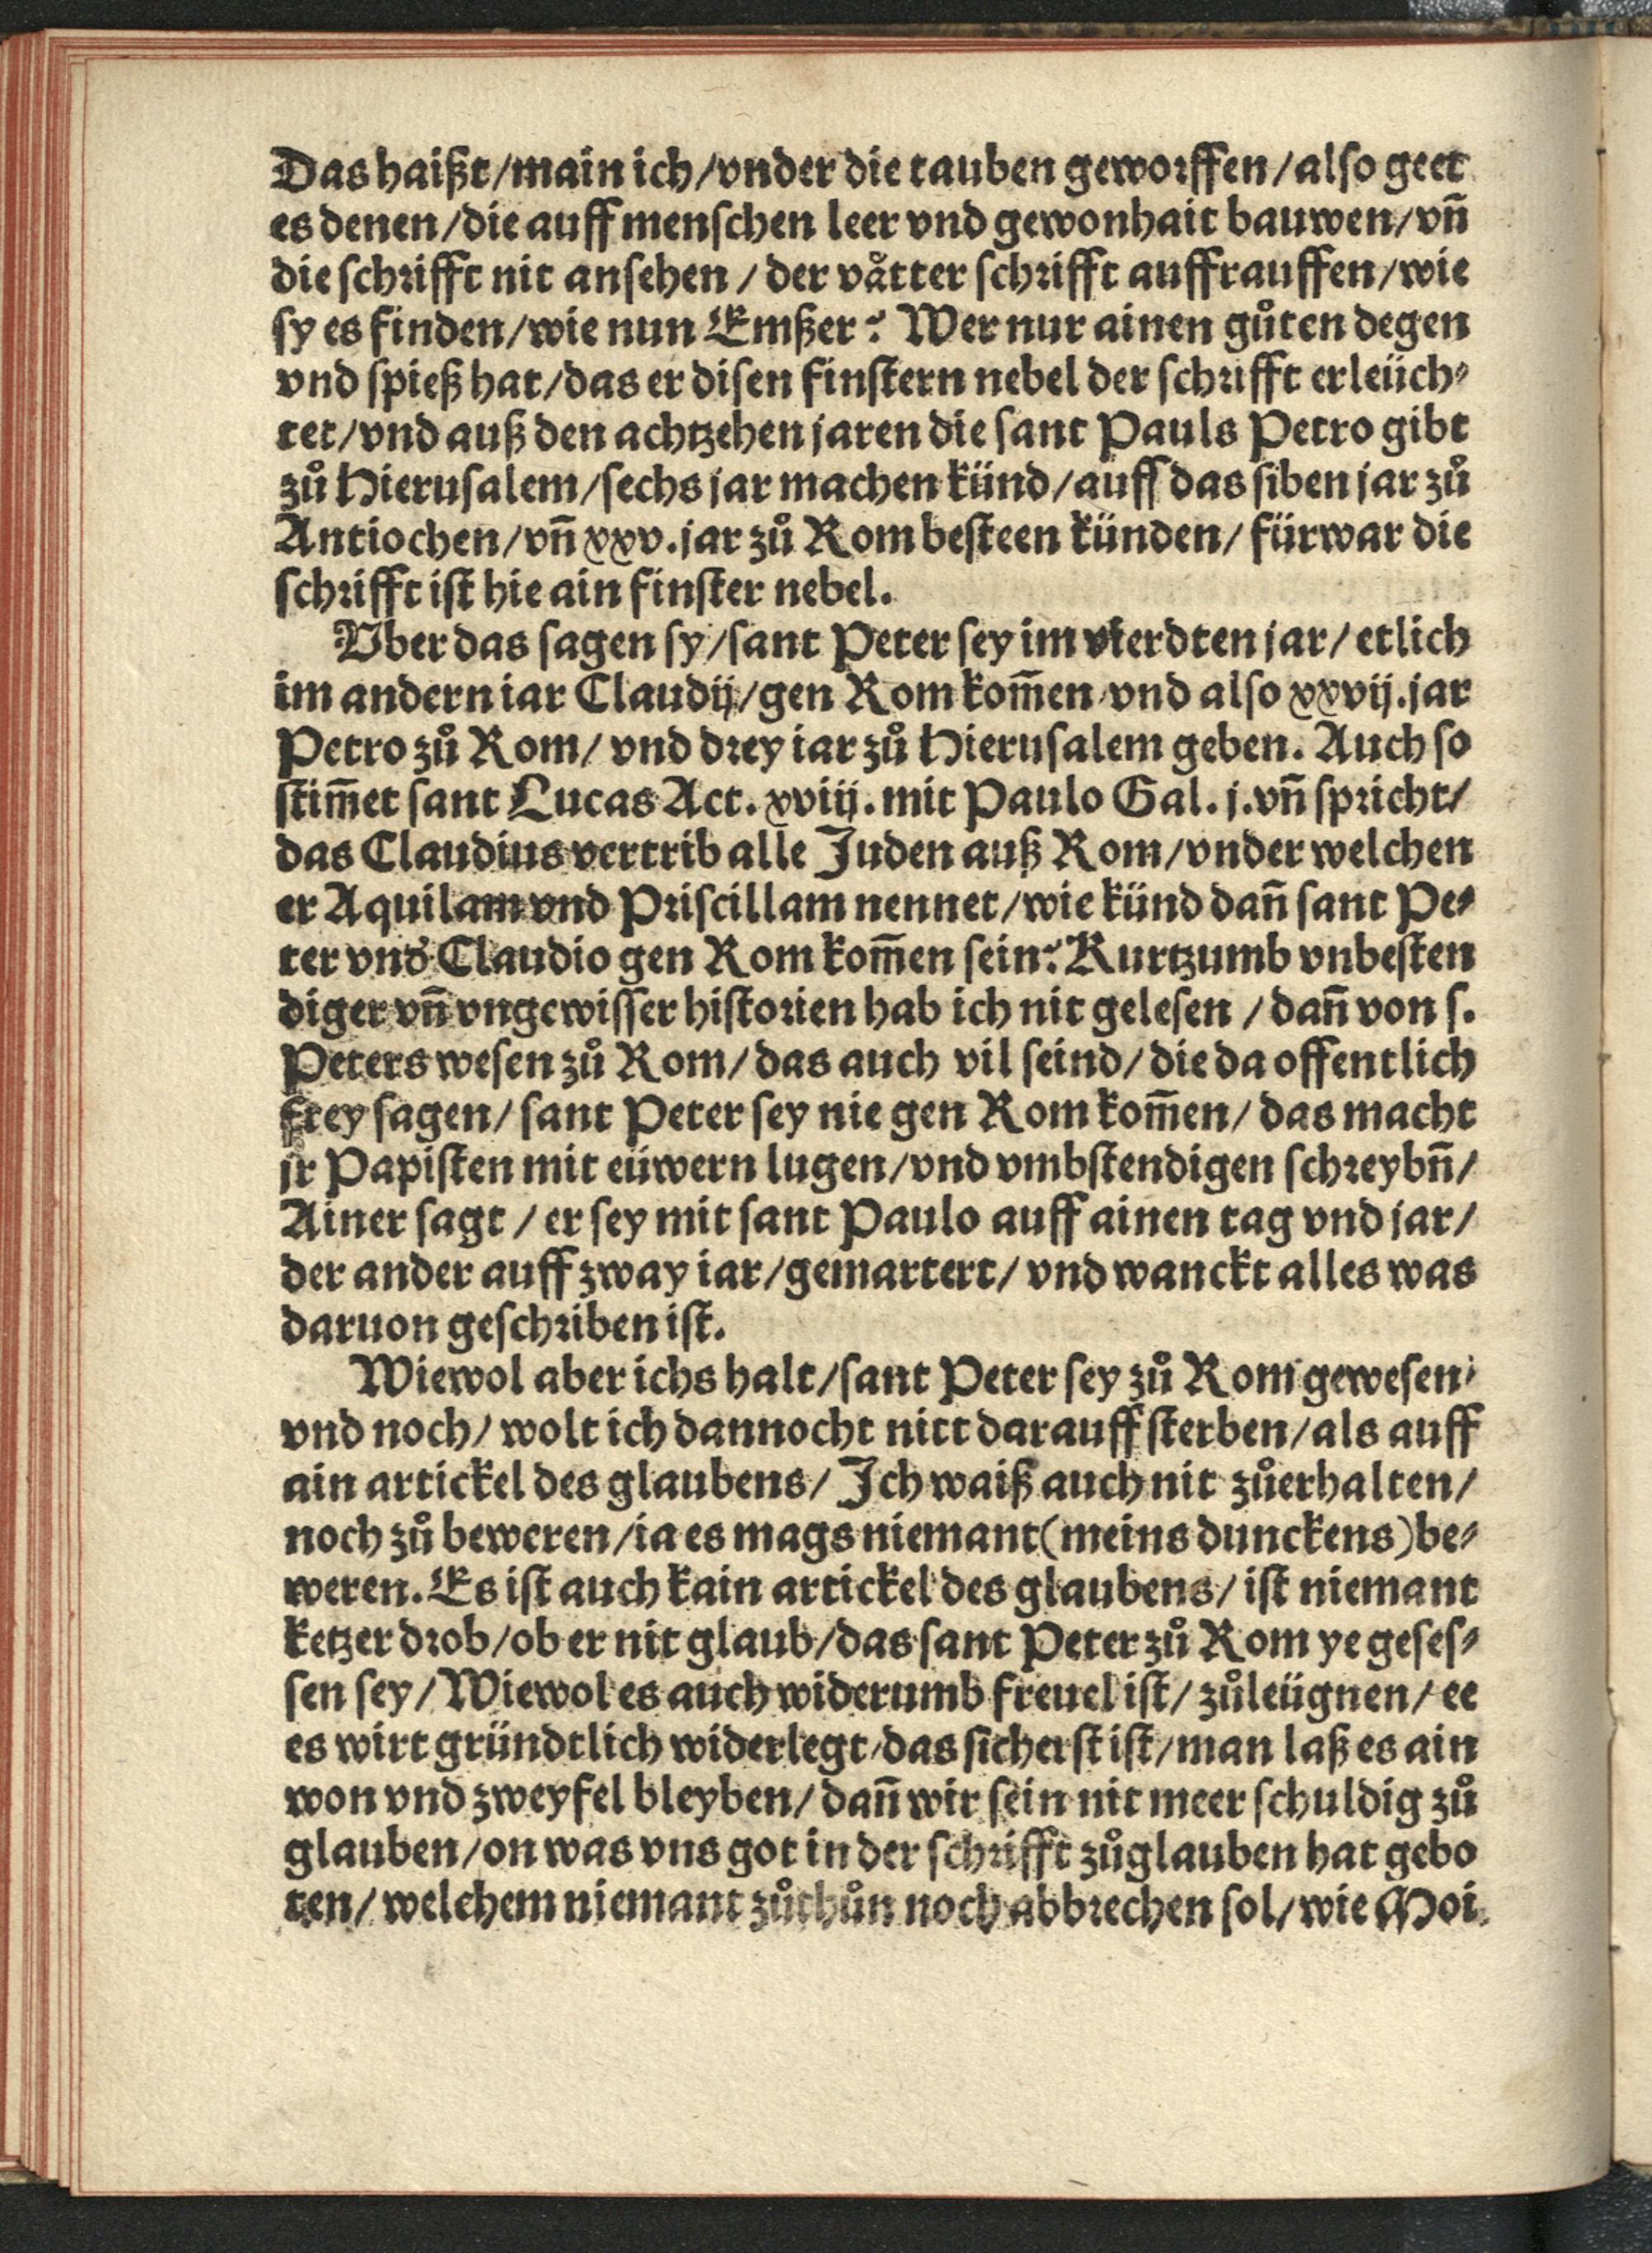 Das haißt/main ich/vnder die tauben geworffen/also geet
es denen/die auff menschen leer vnd gewonhait bauwen/vn̄
die schrifft nit ansehen/der våtter schrifft auffrauffen/wie
sy es finden/wie nun Emßer? Wer nur ainen gůten degen
vnd spieß hat/das er disen finstern nebel der schrifft erleüch⸗
tet/vnd auß den achtzehen jaren die sant Pauls Petro gibt
zů Hierusalem/sechs jar machen künd/auff das siben jar zů
Antiochen/vn̄ xxv.jar zů Rom besteen künden/fürwar die
schrifft ist hie ain finster nebel.
Vber das sagen sy/sant Peter sey im vierdten jar/etlich
im andern iar Claudij/gen Rom kom̄en/vnd also xxvij.jar
Petro zů Rom/vnd drey iar zů Hierusalem geben. Auch so
stim̄et sant Lucas Act. xviij. mit Paulo Gal. j.vn̄ spricht/
das Claudius vertrib alle Juden auß Rom/vnder welchen
er Aquilam vnd Priscillam nennet/wie künd dan̄ sant Pe⸗
ter vnd' Claudio gen Rom kom̄en sein? Kurtzumb vnbesten
diger vn̄ vngewisser historien hab ich nit gelesen/dan̄ von s.
Peters wesen zů Rom/das auch vil seind/die da offentlich
frey sagen/sant Peter sey nie gen Rom kom̄en/das macht
jr Papisten mit eüwern lugen/vnd vmbstendigen schreybn̄/
Ainer sagt/er sey mit sant Paulo auff ainen tag vnd jar/
der ander auff zway iar/gemartert/vnd wanckt alles was
daruon geschriben ist.
Wiewol aber ichs halt/sant Peter sey zů Rom gewesen/
vnd noch/wolt ich dannocht nitt darauff sterben/als auff
ain artickel des glaubens/Jch waiß auch nit zůerhalten/
noch zů beweren/ia es mags niemant(meins dunckens)be⸗
weren. Es ist auch kain artickel des glaubens/ist niemant
ketzer drob/ob er nit glaub/das sant Peter zů Rom ye geses⸗
sen sey/Wiewol es auch widerumb freuel ist/zůleügnen/ee
es wirt gründtlich widerlegt/das sicherst ist/man laß es ain
won vnd zweyfel bleyben/dan̄ wir sein nit meer schuldig zů
glauben/on was vns got in der schrifft zůglauben hat gebo
ten/welchem niemant zůthůn noch abbrechen sol/wie Moi⸗